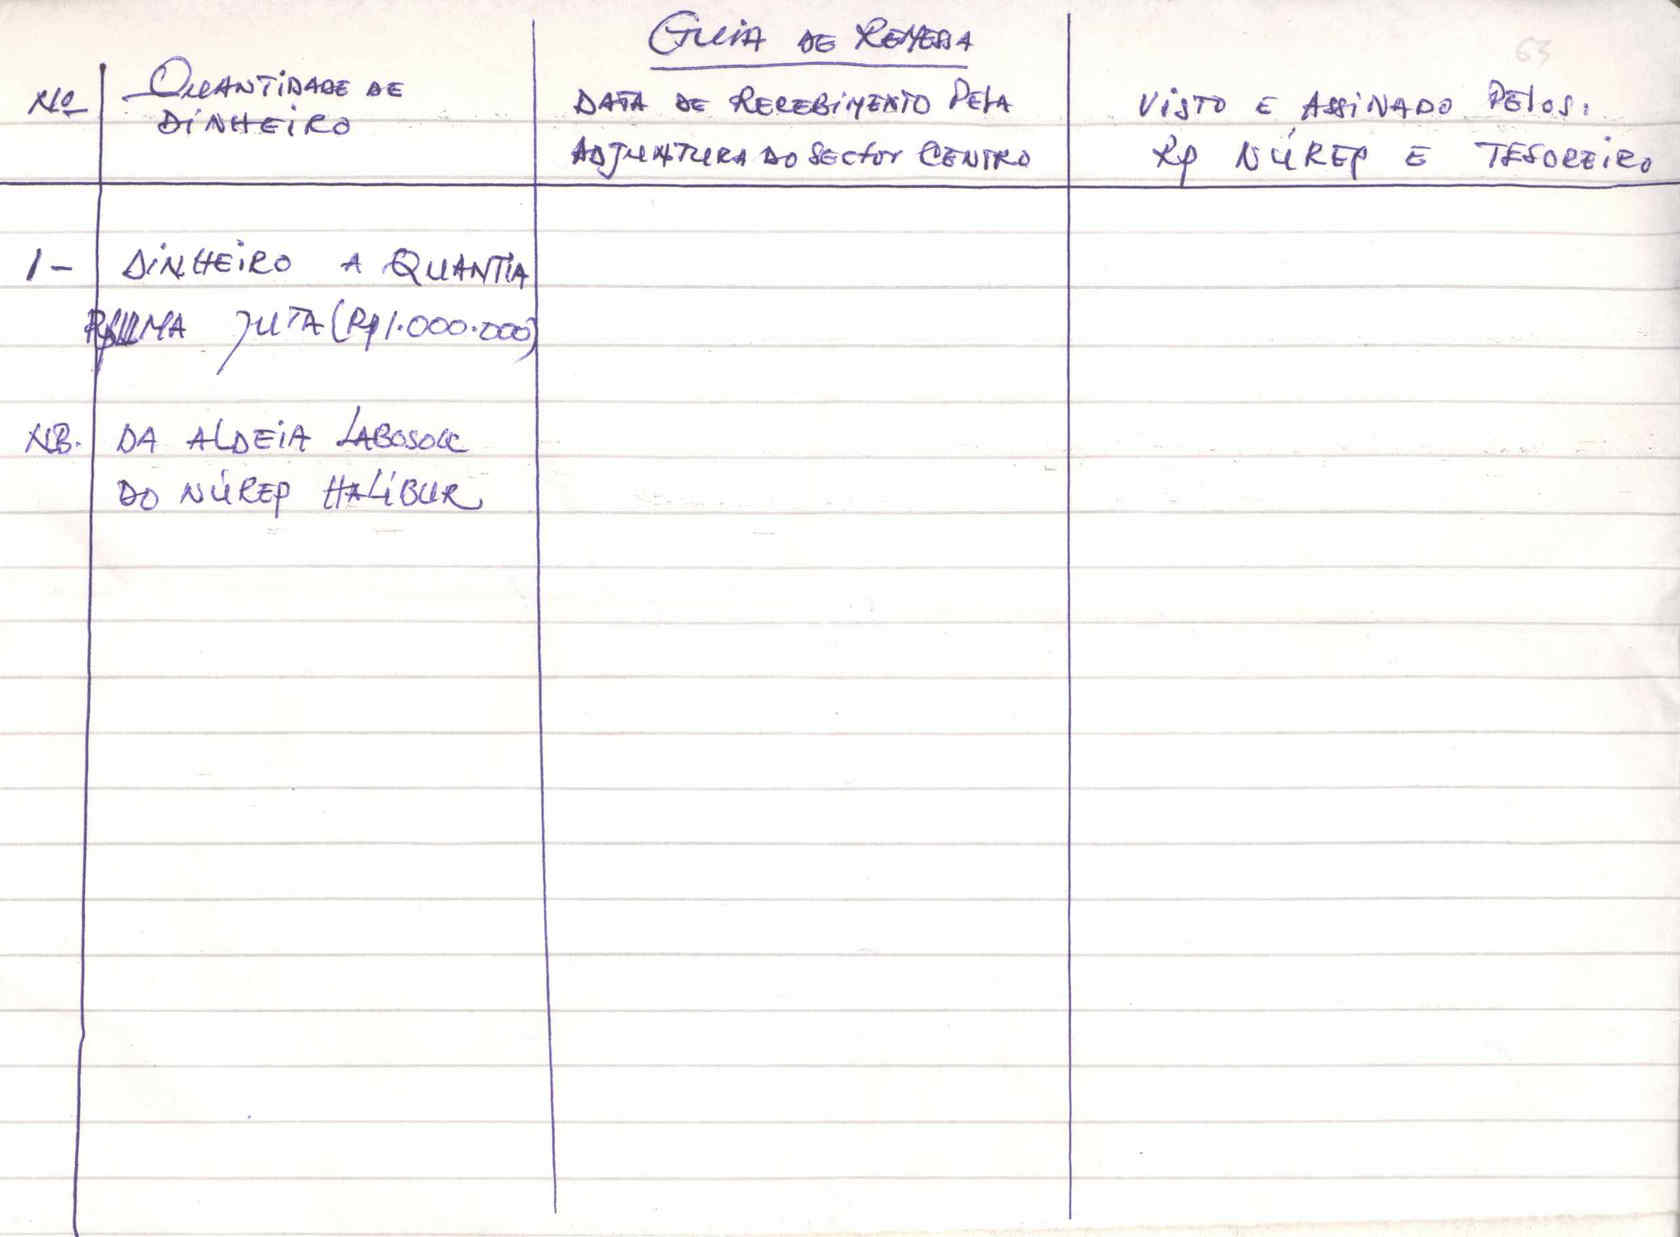 GUIA DE REMESSA
63
Nº
QUANTIDADE DE
DINHEIRO
DATA DE RECEBIMENTO PELA
ADJUNTURA DO SECTOR CENTRO
VISTO E ASSINADO PELOS:
RP NÚREP E TESOREIRO
1- DINHEIRO A QUANTIA
UMA JUTA (Rp 1.000.000)
NB. DA ALDEIA LABOSOLU
DO NÚREP HALIBUR